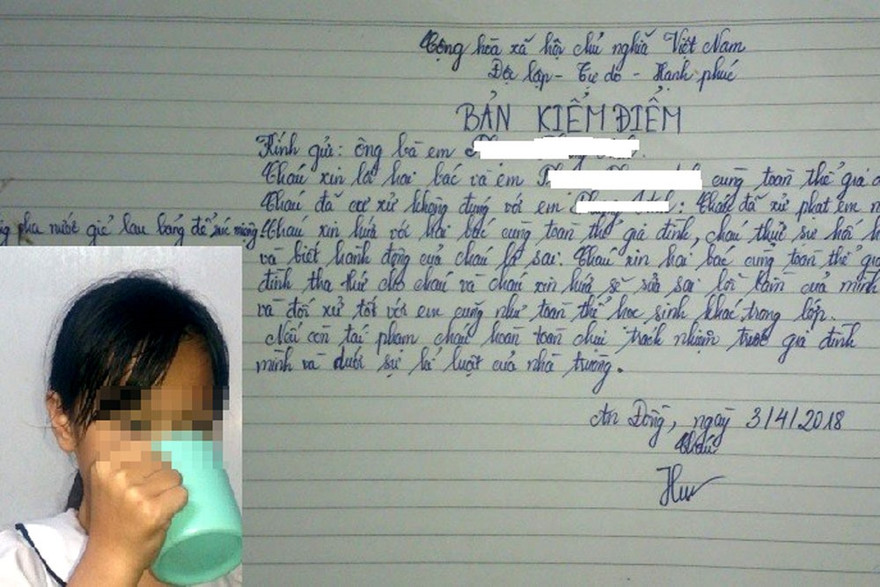 Cộng hòa xã hội chủ nghĩa Việt Nam
Độc lập - Tự do - Hạnh phúc
BẢN KIỂM ĐIỂM
Kính gửi: ông bà em
Cháu xin lỗi hai bác và em cùng toàn thể gia
Cháu đã cư xử không đúng với em : Cháu đã xử phạt em
pha nước giẻ lau bảng để súc miệng. Cháu xin hứa với hai bác cùng toàn thể gia đình, cháu thực sự hối
và biết hành động của cháu là sai. Cháu xin hai bác cùng toàn thể gia
đình tha thứ cho cháu và cháu xin hứa sẽ sửa sai lỗi lầm của mình
và đối xử tốt với em cũng như toàn thể học sinh khác trong lớp.
Nếu còn tái phạm cháu hoàn toàn chịu trách nhiệm trước gia đình
mình và dưới sự kỉ luật của nhà trường.
An Đồng, ngày 3/4/2018
Cháu